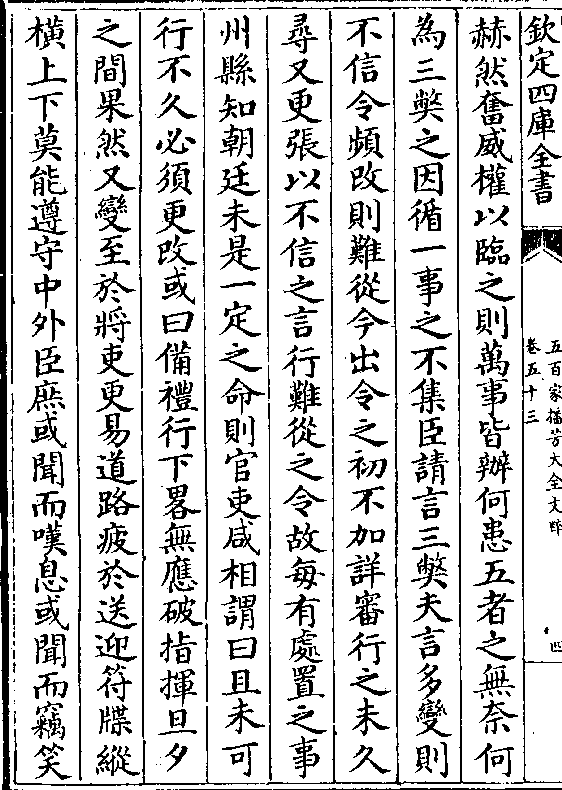 欽定四庫全書
五百家播芳大全文粹
卷五十三
四
赫然奮威權以臨之則萬事皆辦何患五者之無奈何
為三弊之因循一事之不集臣請言三弊夫言多變則
不信令頻改則難從今出令之初不加詳審行之未久
尋又更張以不信之言行難從之令故每有處置之事
州縣知朝廷未是一定之命則官吏咸相謂曰且未可
行不久必須更改或曰備禮行下畧無應破指揮旦夕
之間果然又變至於將吏更易道路疲於送迎符牒縱
橫上下莫能遵守中外臣庶或聞而嘆息或聞而竊笑